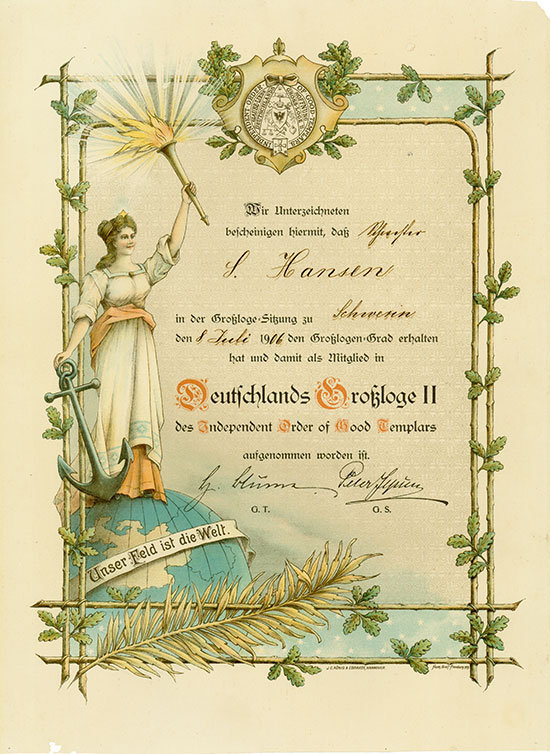 INDEPENDENT ORDER OF GOOD TEMPLARS
Wir Unterzeichneten
bescheinigen hiermit, daß Schwester
S. Hansen
in der Großloge-Sitzung zu Schwerin
den 8 Juli 1906 den Großlogen-Grad erhalten
hat und damit als Mitglied in
Deutschlands Großloge II
des Independent Order of Good Templars
aufgenommen worden ist.
H. Blume
G. T. G. S.
Unser Feld ist die Welt.
J. C. KÖNIG & EBHARDT, HANNOVER